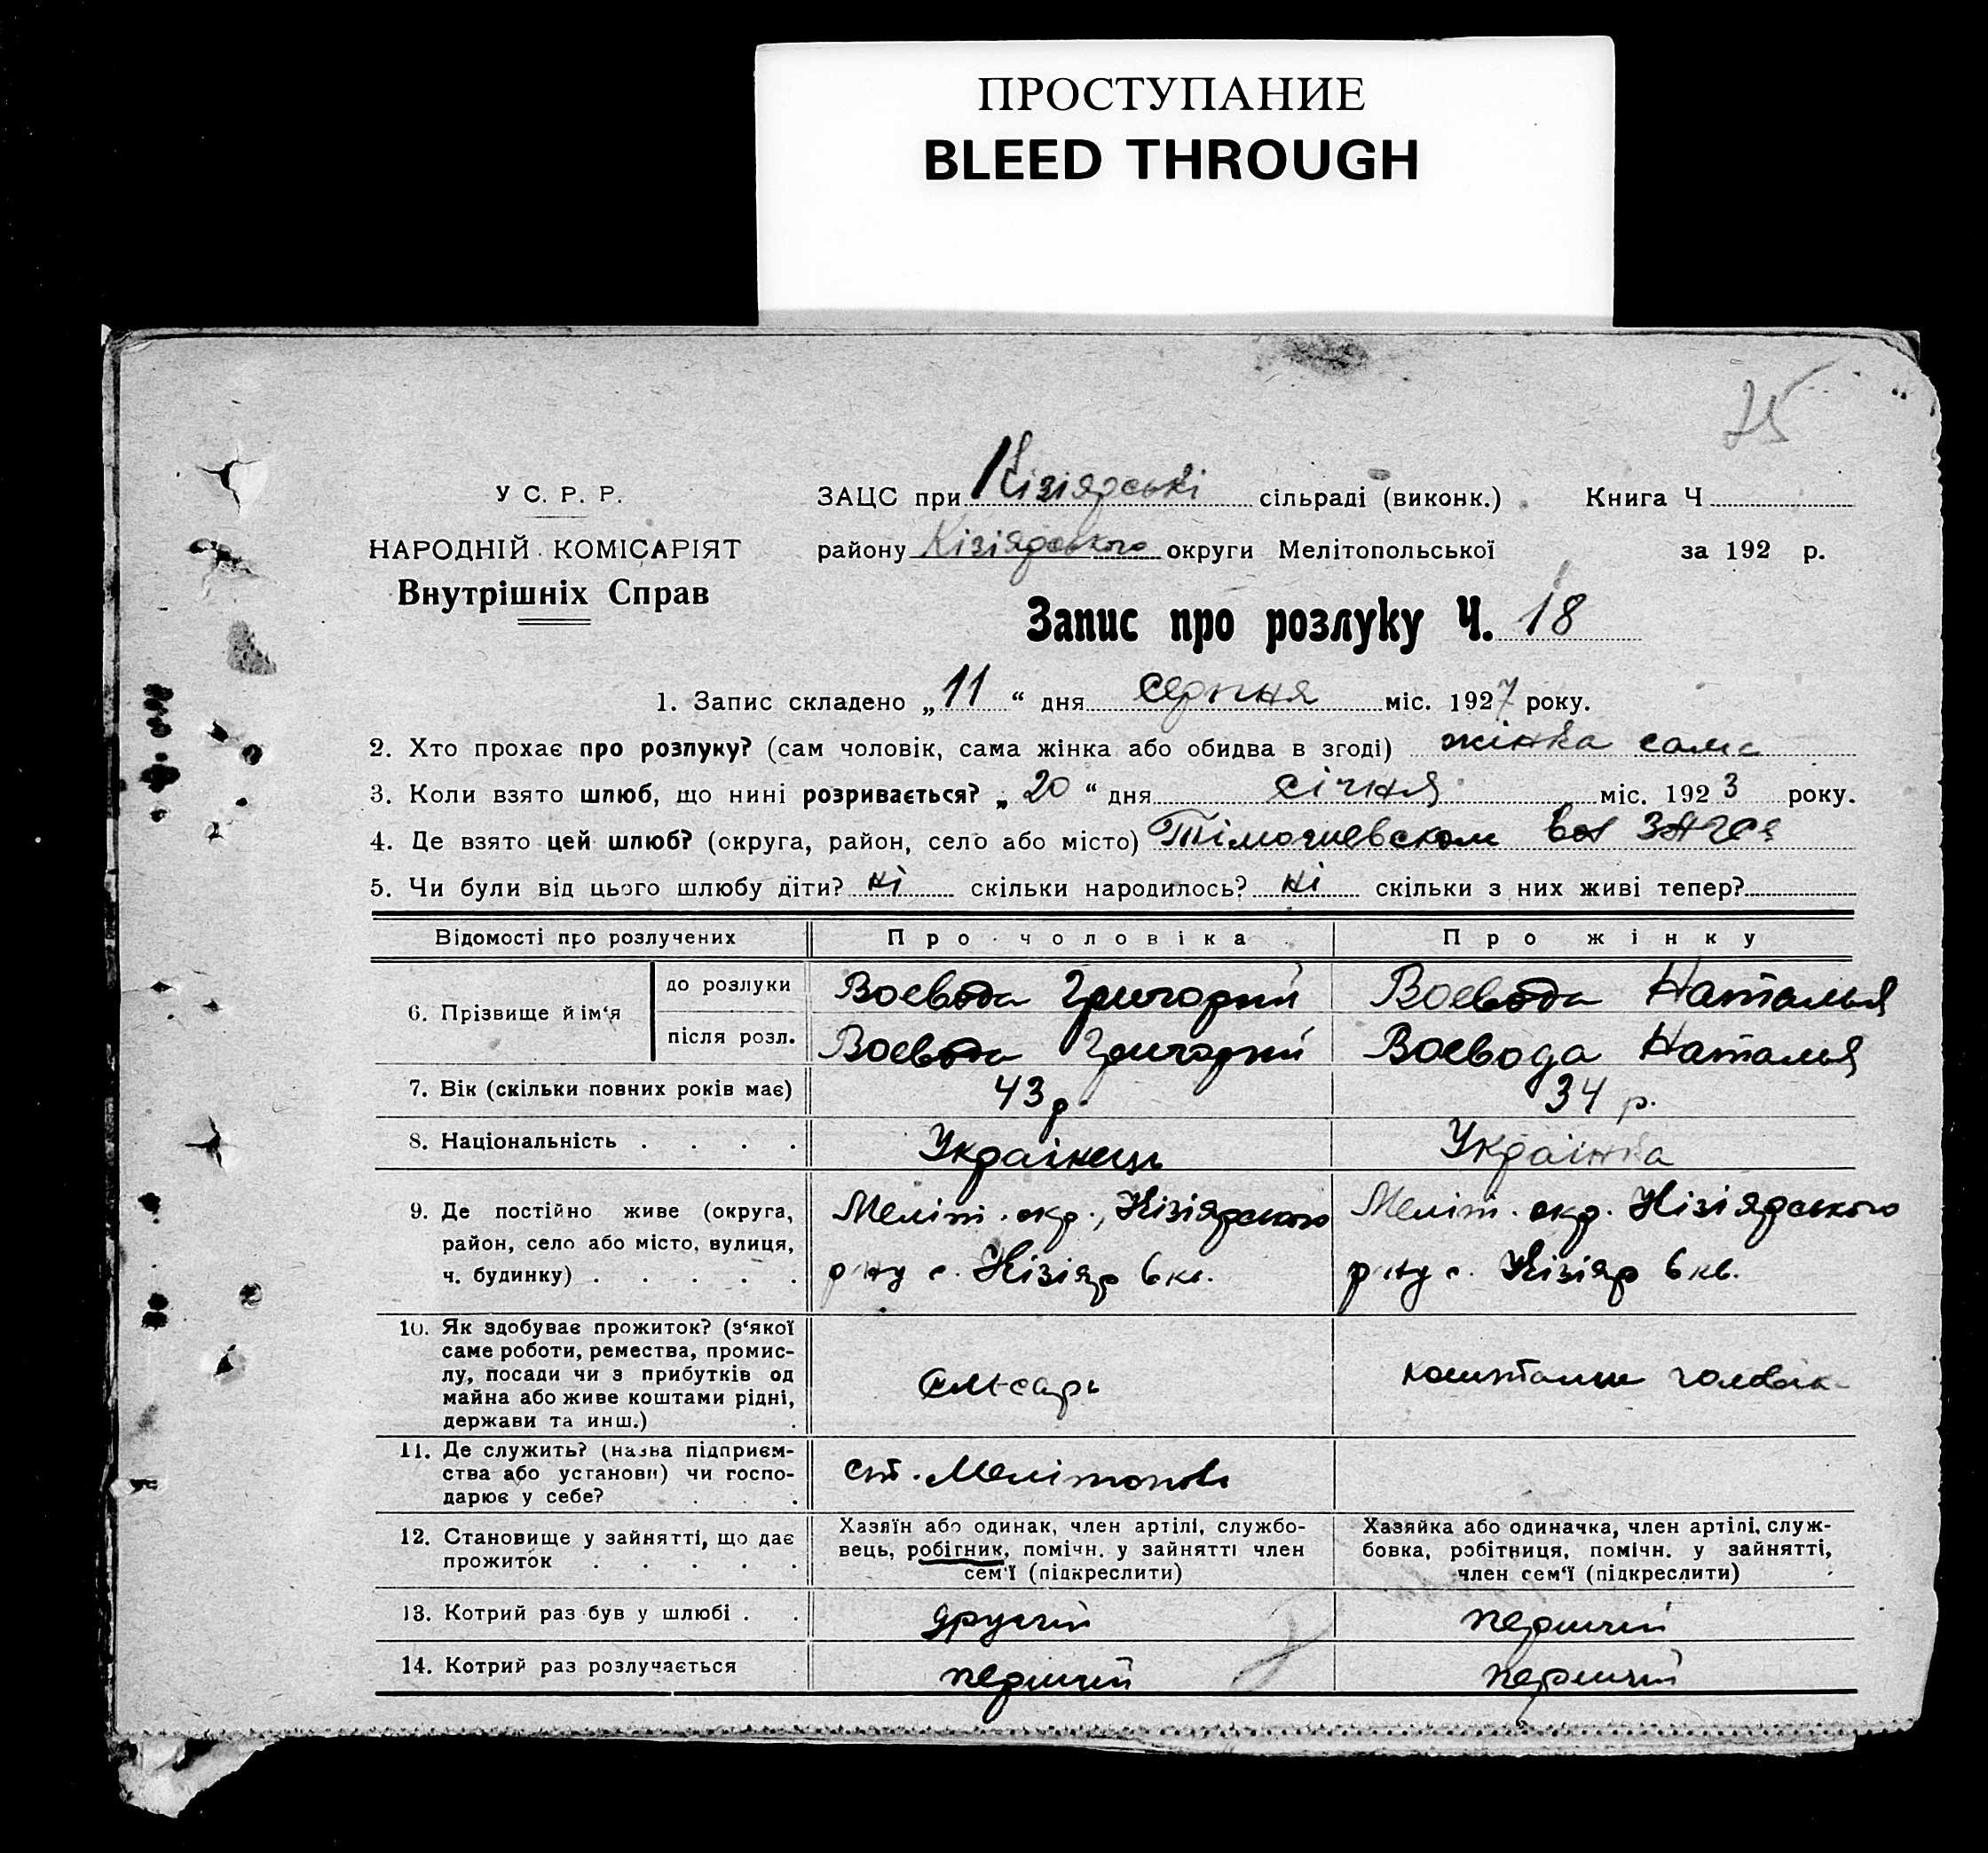 ПРОСТУПАНИЕ
BLEED THROUGH
75
У С. Р. Р.
НАРОДНІЙ КОМІСАРІЯТ
Внутрішніх Справ
ЗАЦС при Кізіярські сільраді (виконк.) Книга Ч
району Кізіярського округи Мелітопольської за 192 р.
Запис про розлуку Ч. 18
1. Запис складено „11“ дня серпня міс. 1927 року.
2. Хто прохає про розлуку? (сам чоловік, сама жінка або обидва в згоді) жінка сама
3. Коли взято шлюб, що нині розривається? „20“ дня січня міс. 1923 року.
4. Де взято цей шлюб? (округа, район, село або місто)
5. Чи були від цього шлюбу діти? ні скільки народилось? ні скільки з них живі тепер?
Відомості про розлучених Про чоловіка Про жінку
6. Прізвище й ім‘я
до розлуки Воевода Григорий Воевода Наталья
після розл. Воевода Григорий Воевода Наталья
7. Вік (скільки повних років має) 43 р. 34 р.
8. Національність . . . . Українець Українка
9. Де постійно живе (округа, район, село або місто, вулиця, ч. будинку) . . . . .
Меліт. окр., Кізіярського
р ну с. Кізіяр 6 кв.
Меліт. окр. Кізіярського
р ну с. Кізіяр 6 кв.
10. Як здобуває прожиток? (з‘якої
саме роботи, ремества, промис-
лу, посади чи з прибутків од
майна або живе коштами рідні,
держави та инш.) .
слюсарь
коштами чоловіка
11. Де служить? (назва підприєм-
ства або установи) чи госпо-
дарює у себе? . . .
ст. Мелітополь
12. Становище у зайнятті, що дає
прожиток . . . . .
Хазяїн або одинак, член артілі, службо-
вець, робітник, помічн. у зайнятті член
сем‘ї (підкреслити)
Хазяйка або одиначка, член артілі, служ-
бовка, робітниця, помічн. у зайнятті,
член сем‘ї (підкреслити)
13. Котрий раз був у шлюбі . . другий перший
14. Котрий раз розлучається перший перший